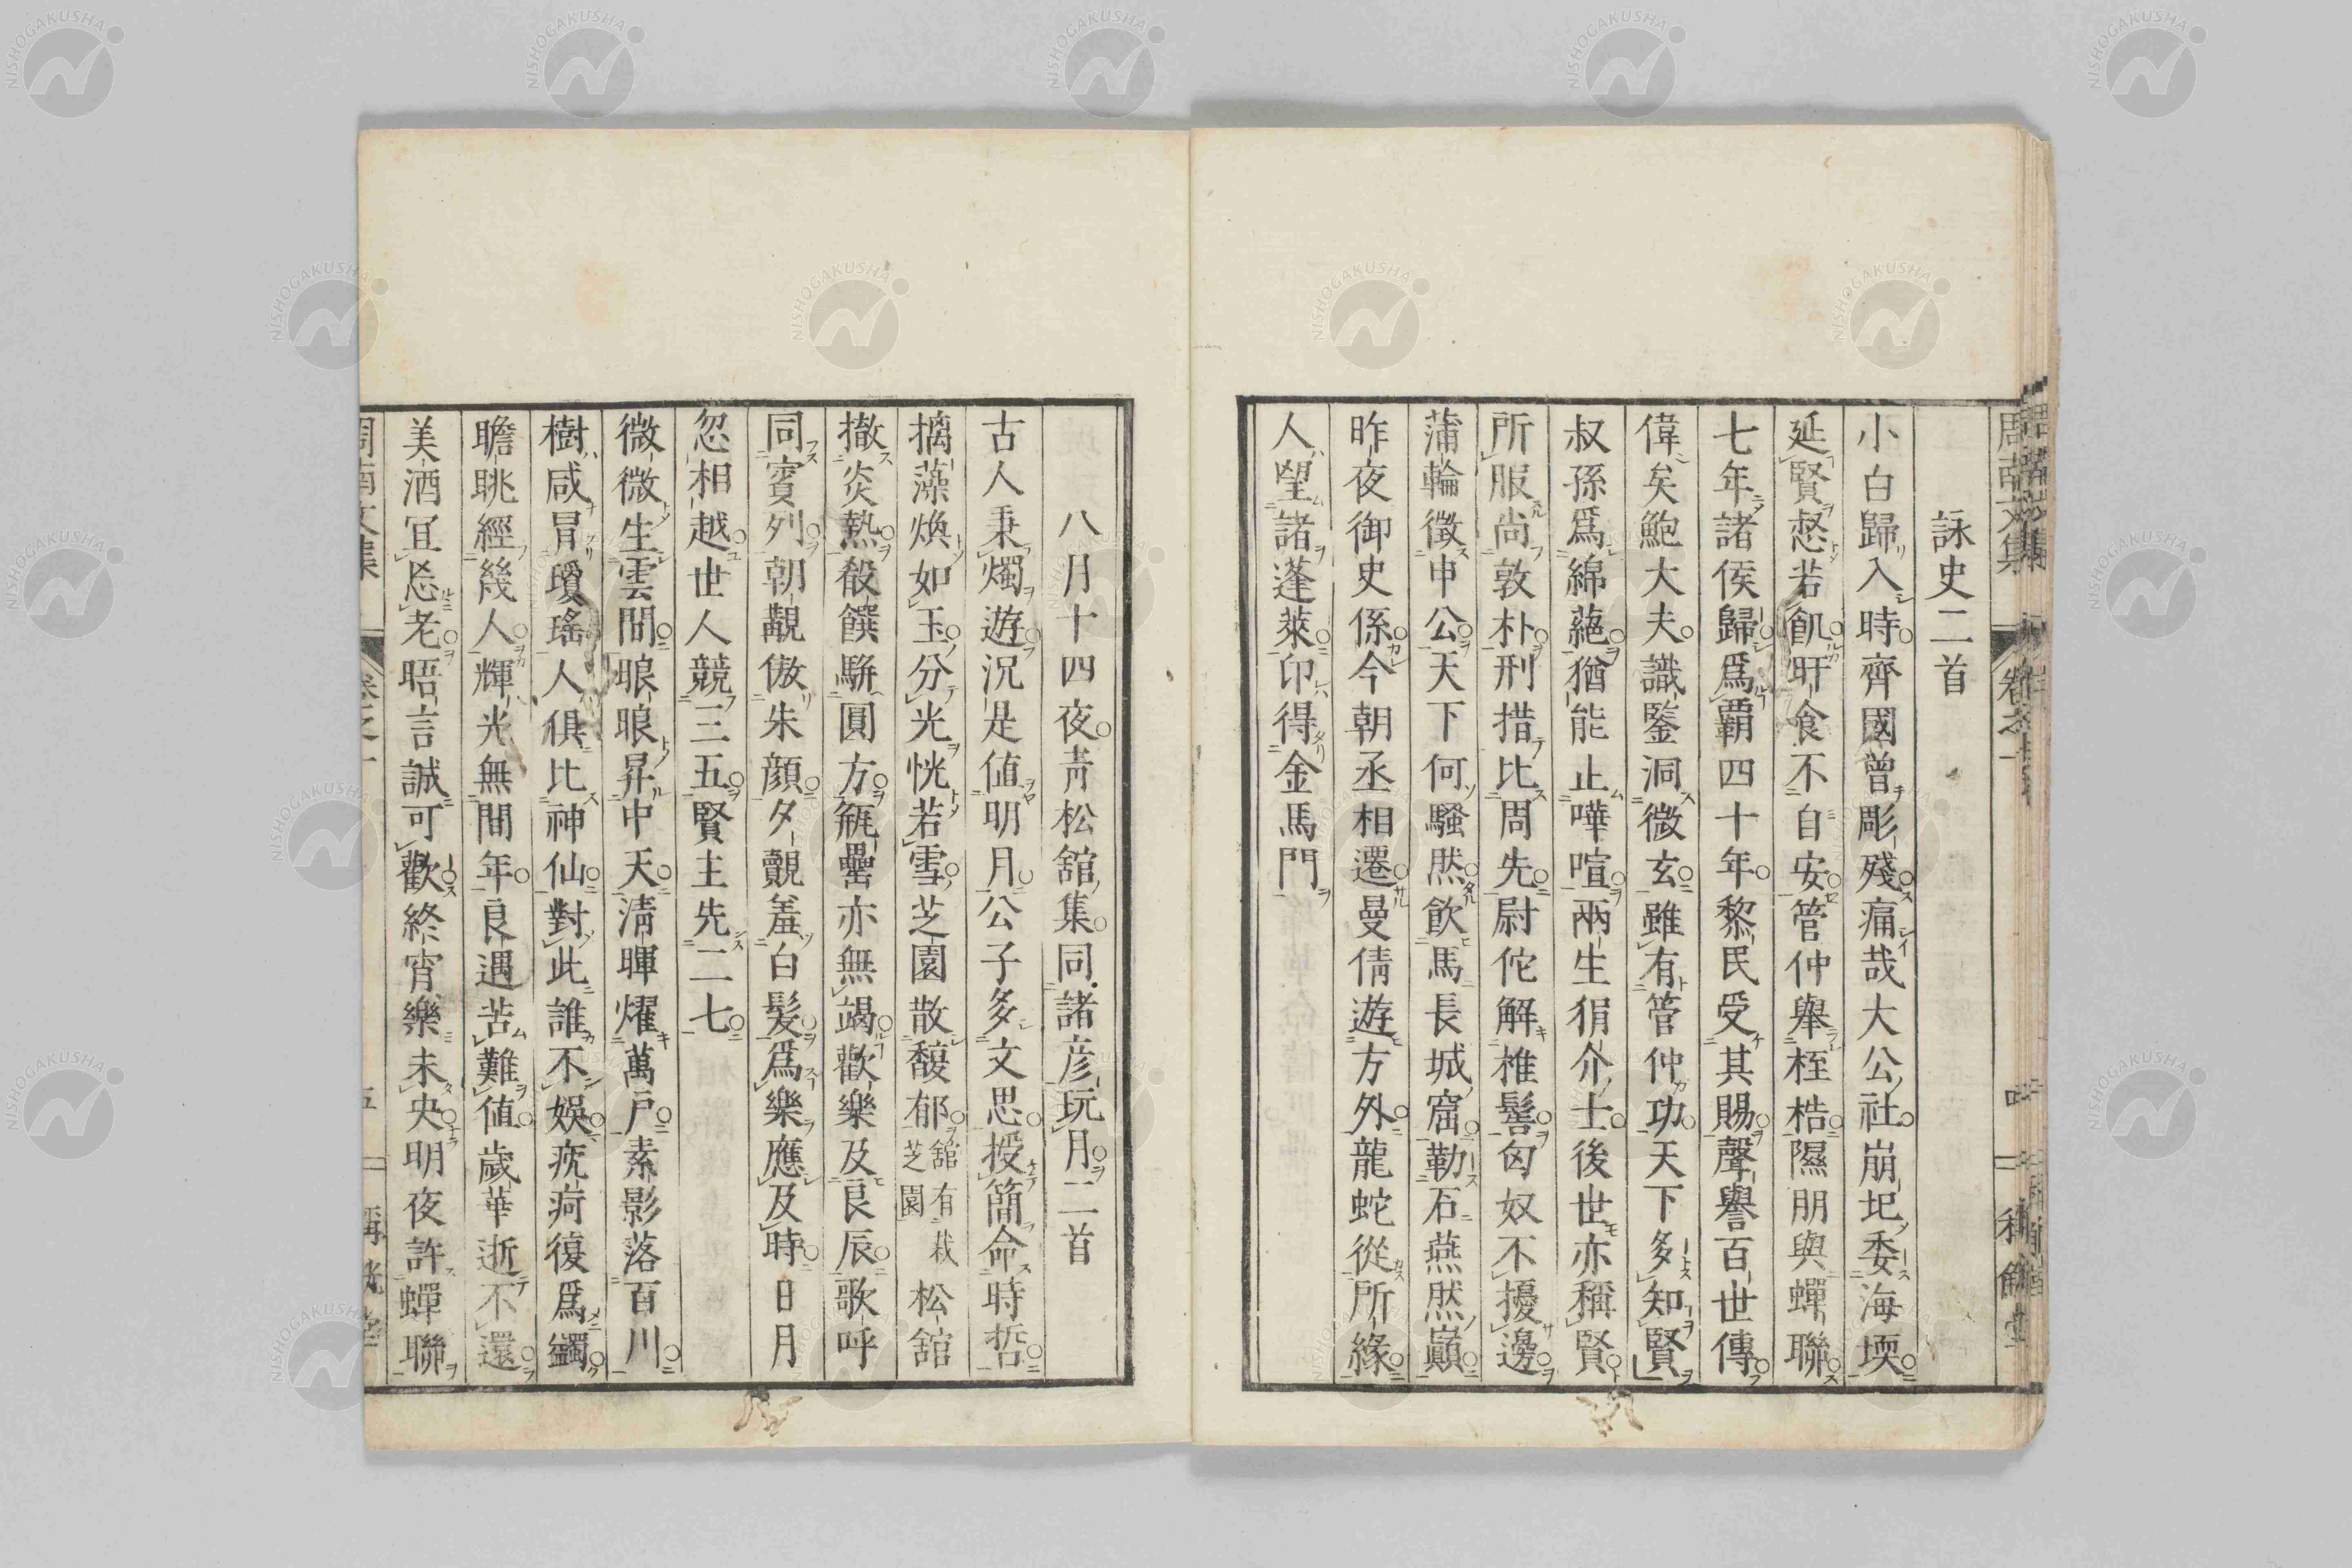 詠史二首
小白歸入時齊國曾彫殘痛哉大公社崩圯委海堧
延賢惄若飢旰食不自安管仲舉桎梏隰朋與蟬聯
七年諸侯歸爲覇四十年黎民受其賜聲譽百世傳
偉矣鮑大夫識鑒洞微玄雖有管仲功天下多知賢
叔孫爲綿蕝猶能止嘩喧兩生狷介士後世亦稱賢
所服尚敦朴刑措比周先尉佗解椎髻匈奴不擾邊
蒲輪徵申公天下何騷然飲馬長城窟勒石燕然巓
昨夜御史係今朝丞相遷曼倩遊方外龍蛇從所緣
人望諸蓬萊印得金馬門
八月十四夜靑松舘集同諸彦玩月二首
古人秉燭遊況是値明月公子多文思授簡命時哲
摛藻煥如玉分光恍若雪芝園散馥郁舘有栽芝園松舘
撤炎熱殽饌駢圓方甁罍亦無竭歡樂及良辰歌呼
同賓列朝覯傲朱顔夕覿羞白髪爲樂應及時日月
忽相越世人競三五賢主先二七
微微生雲間晛晛昇中天淸暉燿萬戸素影落百川
樹咸冐瓊瑤人俱比神仙對此誰不娛疣疴復爲蠲
瞻眺經幾人輝光無間年良遇苦難値歳華逝不還
美酒冝忘老晤言誠可歡終宵樂未央明夜許蟬聯
周南文集
NISHOGAKUSHA